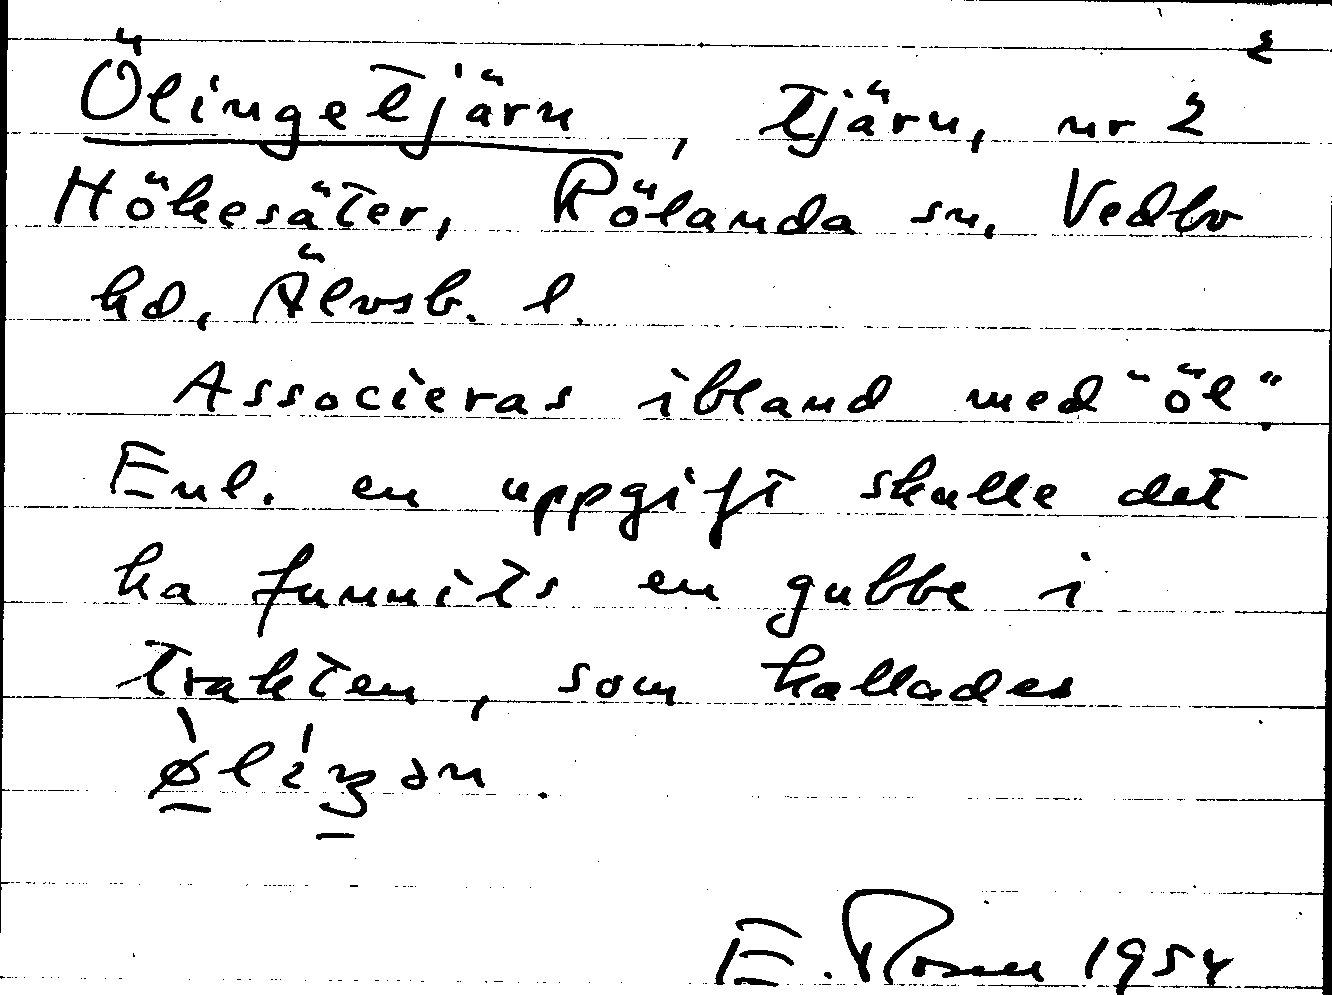 2
Ölingetjärn, tjärn, nr 2
Hökesäter, Rölanda sn, Vedbo
hd, Älvsb. l.
Associeras ibland med "öl".
Enl. en uppgift skulle det
ha funnits en gubbe i
trakten, som kallades
E. Rosen 1954